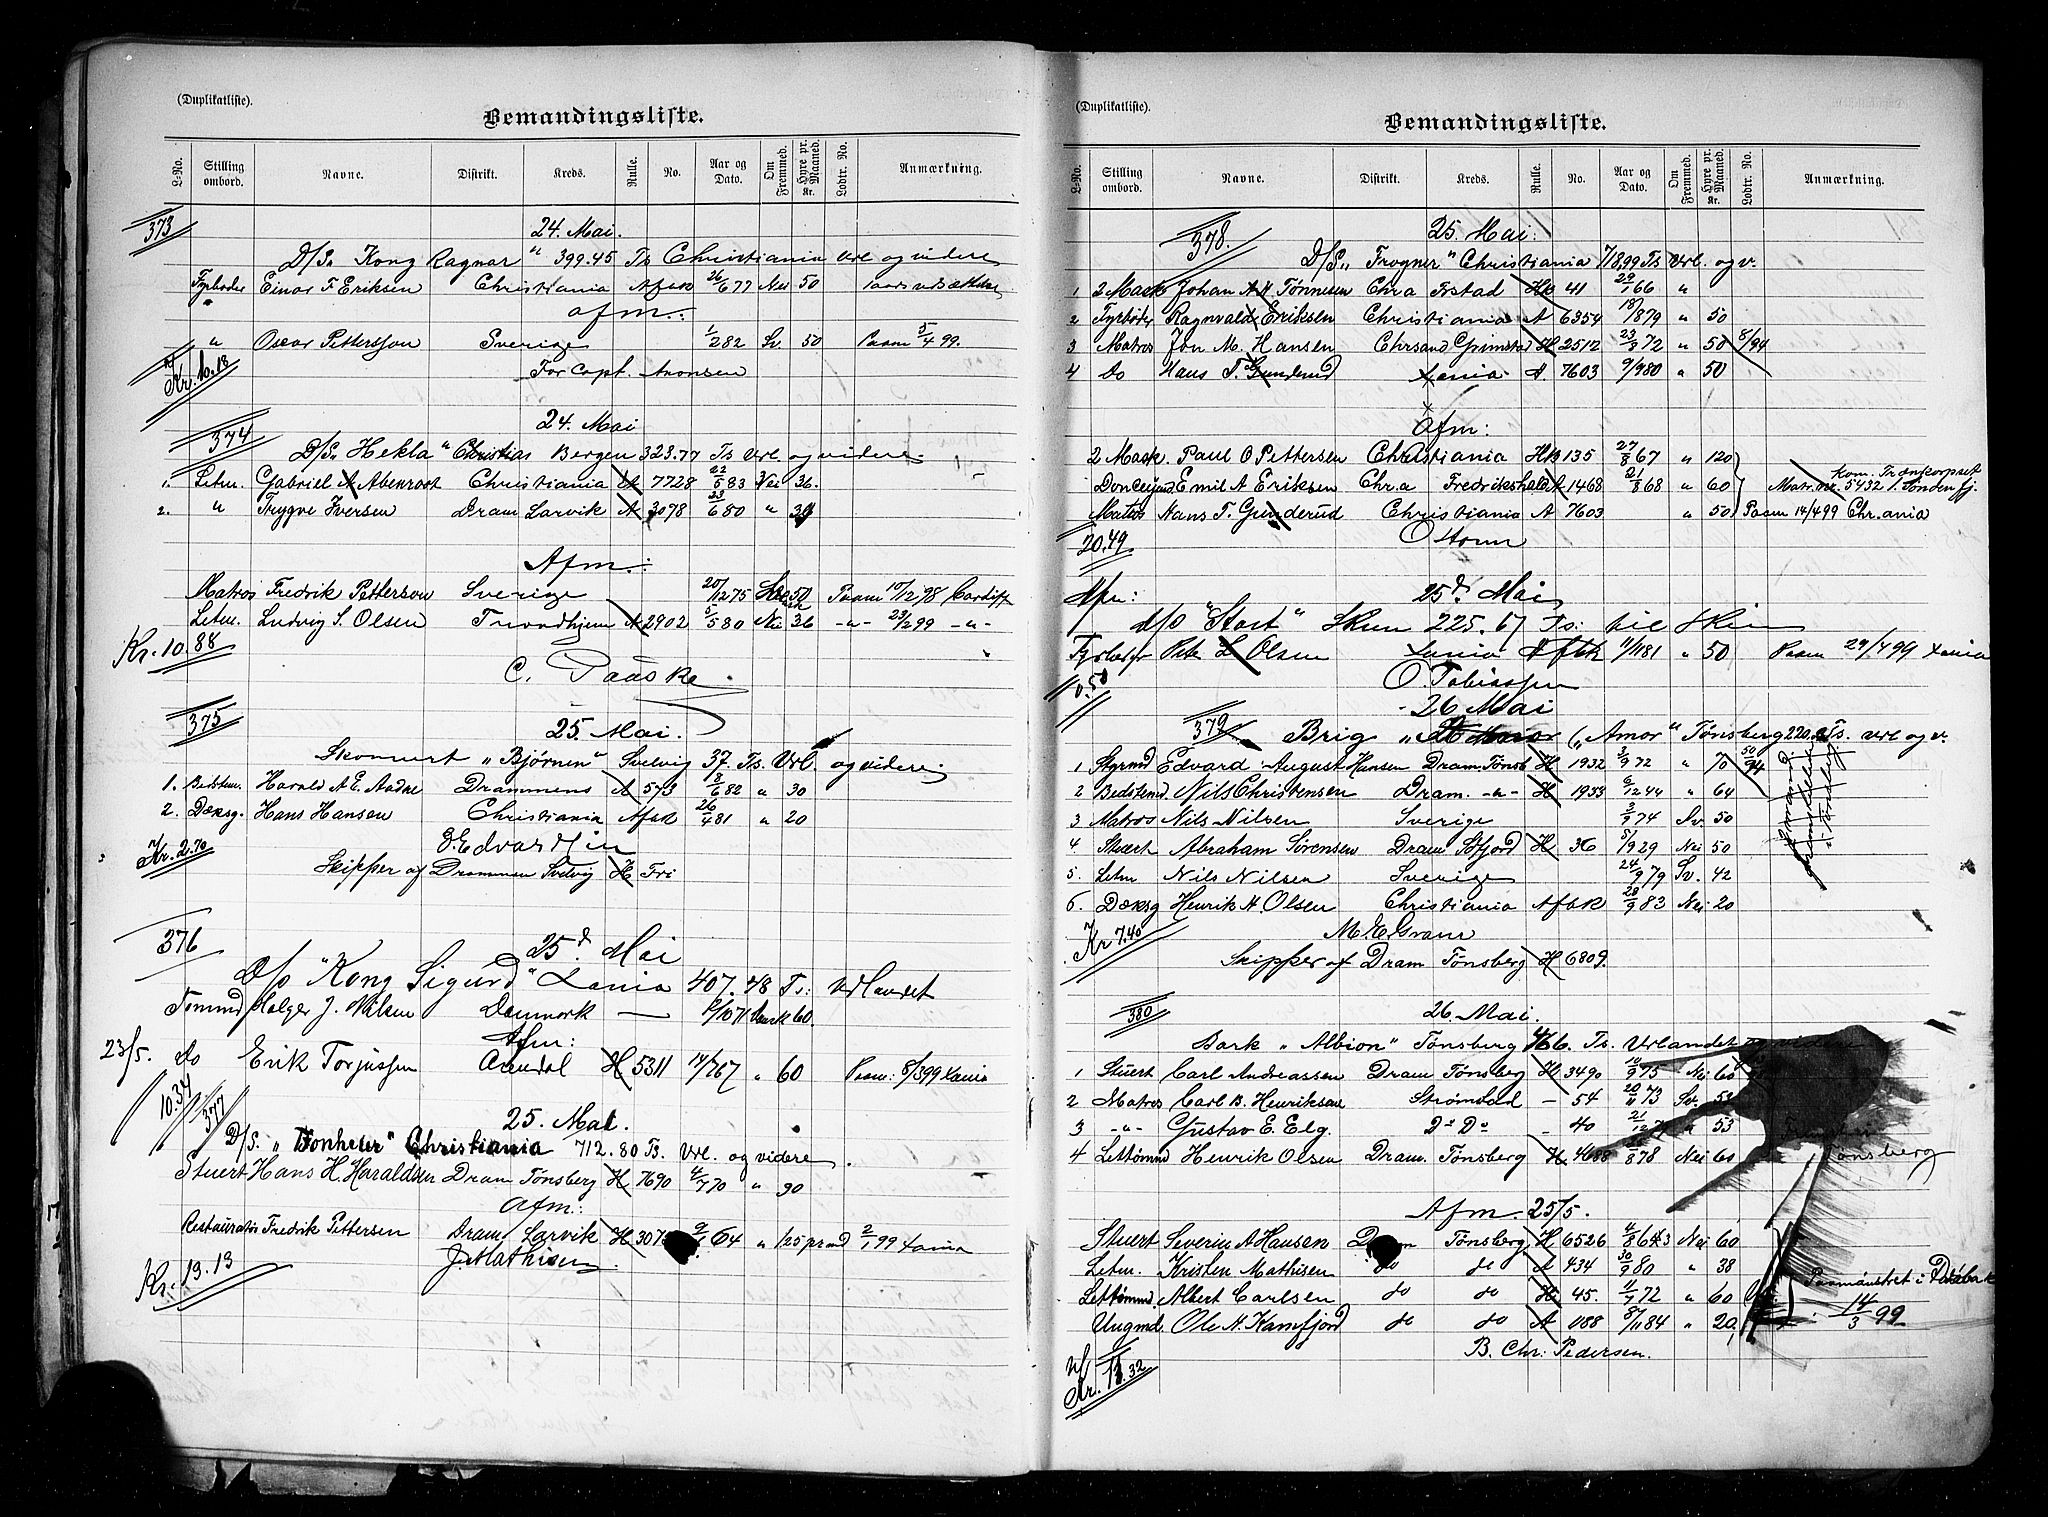 (Duplikatliste).
Bemandingsliste.
L-No. Stilling ombord. Navne. Distrikt. Kreds. Rulle. No. Aar og Dato. Om Fremmed. Hyre pr. Maaned. Kr. Lodtr. No. Anmærkning.
373 24. Mai.
D/S „Kong Ragnar" 399.45 Ts Christiania Url og videre
Fyrbøder Einar F Eriksen Christiania Afbk 26/6 77 Nei 50
afm.:
" Oscar Pettersson Sverige 1/2 82 Sv. 50 Paam 5/4 99.
Kr. 10.18 For Capt. Aronsen
374 24. Mai
D/S „Hekla" Bergen 323.77 Ts Url og videre
1. Letm. Gabriel A Abenroot Christiania A 7728 22/5 83 Nei 36.
2. " Trygve Iversen Dram Larvik A 3078 23/6 80 "
Afm.:
Matros Fredrik Petterson Sverige 20/12 75 50 Paam 10/12 98 Cardiff
Letm. Ludvig S. Olsen Trondhjem A 2902 5/5 80 Nei 36 -"- 23/2 99 -"-
Kr. 10.88
C. Paaske
375 25. Mai.
Skonnert „Bjørnen" Svelvig 37. Ts. Url. og videre
1. Bestm. Harald A E. Aadne Drammens A 573 8/6 82 " 30
2. Dæksg. Hans Hansen Christiania Afbk 26/4 81 " 20
Kr. 2.70 O. Edvardsen
Skipper af Drammen Svelvig H Fri
376 25d Mai
D/S "Kong Sigurd" Xania 407.48 Ts: Udlandet
Tømmd Holger J. Nilsen Danmark 60.
Afm:
23/5. do Erik Torjussen Arendal H 5311 14/7 67 " 60 Paam: 8/3 99 Xania
10.34
377 25. Mai.
D/S. „Ronheier" Christiania 712.80 Ts. Url. og videre.
Stuert Hans H. Haraldsen Dram Tønsberg H 7690 4/7 70 " 90
Afm:
Restauratør Fredrik Pettersen Dram Larvik H 64 " 125 prmd 2/1 99 Xania
J. Mathisen.
Kr. 13.13
(Duplikatliste).
Bemandingsliste.
L-No. Stilling ombord. Navne. Distrikt. Kreds. Rulle. No. Aar og Dato. Om Fremmed. Hyre pr. Maaned. Kr. Lodtr. No. Anmærkning.
378. 25. Mai.
D/S „Frogner" Christiania 718,99 Ts Url. og v.
1 2 Mask Johan A. A. Tønnesen Chr a Hk 41 29/1 66 "
2 Fyrbøder Ragnvald Eriksen Christiania A 6354 18/8 79 " 50
3 Matros Jon M. Hansen Chrsand Grimstad H 2512 23/3 72 " 50 8/94
4 do Hans T. Gunderud Xania A. 7603 9/9 80 " 50
Afm:
2 Mask. Paul O Pettersen Christiania Hk 135 27/8 67 " 120
Donckeymd Emil A Eriksen Chr.a Fredrikshald A 1468 21/8 68 " 60 Matr. 5432
Matros Hans T. Gunderud Christiania A 7603 " 50 Paam 14/4 99 Chr.ania
20.49 O Storm
25d Mai
D/S "Start" Skien 225.67 Ts: til Skien
Fyrbøder Olsen Xania Afbk 11/1 81 " 50 Paam 29/4 99 Xania
10.50 O. Tobiassen
26 Mai
379 Brig „Amor" Tønsberg Ts. Url og v.
1 Styrmd Edvard August Hansen Dram. Tønsb H 1932 3/9 72 " 70 50/94
2 Bedstemd Nils Christensen Dram. -"- H 1933 6/12 44 " 64
3 Matros Nils Nilsen Sverige 3/9 74 Sv. 50
4 Stuert Abraham Sørensen Dram Sfjord H 36 5/9 29 Nei 50
5. Letm Nils Nilsen Sverige 24/9 79 Sv. 42
6. Dæksg Henrik A. Olsen Christiania Afbk 28/9 83 Nei 20
Kr 7.40 M. E. Gram
Skipper af Dram Tønsberg H 6809.
380 26 Mai.
Bark „Albion" Tønsberg 466. Ts. Url andet
1 Stuert Carl Andreassen Dram Tønsberg H 3490 10/9 75 Nei 60
2 Matros Carl B. Henriksen Strømstad — 54 20/11 73 Sv. 53
3 -"- Gustav E. Elg. Do Do - 40 53
4 Lettømmd Henrik Olsen Dram. Tønsberg H 4688 78 Nei 60 Tønsberg
Afm. 25/5.
Stuert Severin A Hansen Dram Tønsberg H 6526 Nei 60
Letm. Kristen Mathisen do do A 434 30/9 80 " 38
Lettømmd. Albert Carlsen do do H 45. 11/7 72 " 60 Paamønstret i
Ungmd. Ole A. Kamfjord do do A 1188 8/11 84 " 20, 14/3 99
B. Chr. Pedersen.